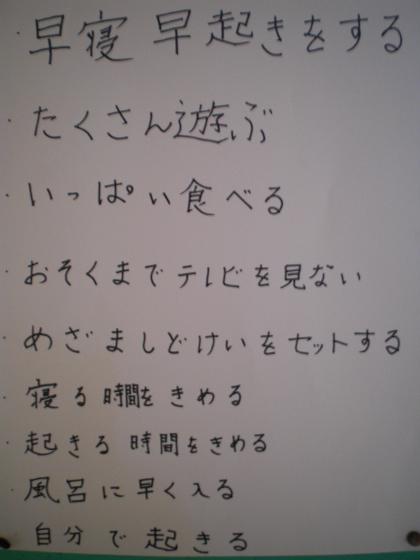 ・早寝 早起きをする
・たくさん遊ぶ
・いっぱい食べる
・おそくまでテレビを見ない
・めざましどけいをセットする
・寝る時間をきめる
・起きる時間をきめる
・風呂に早く入る
・自分で起きる